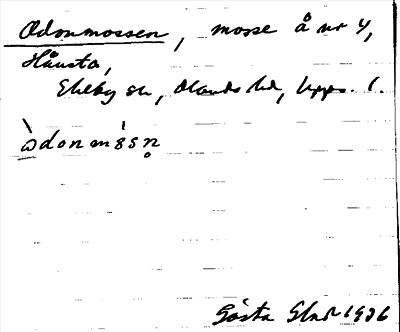 Odonmossen, mosse å nr 4,
Håusta,
Ekeby sn, Olands hd, Upps. l.
òdonms̀sn̥
Gösta 1936